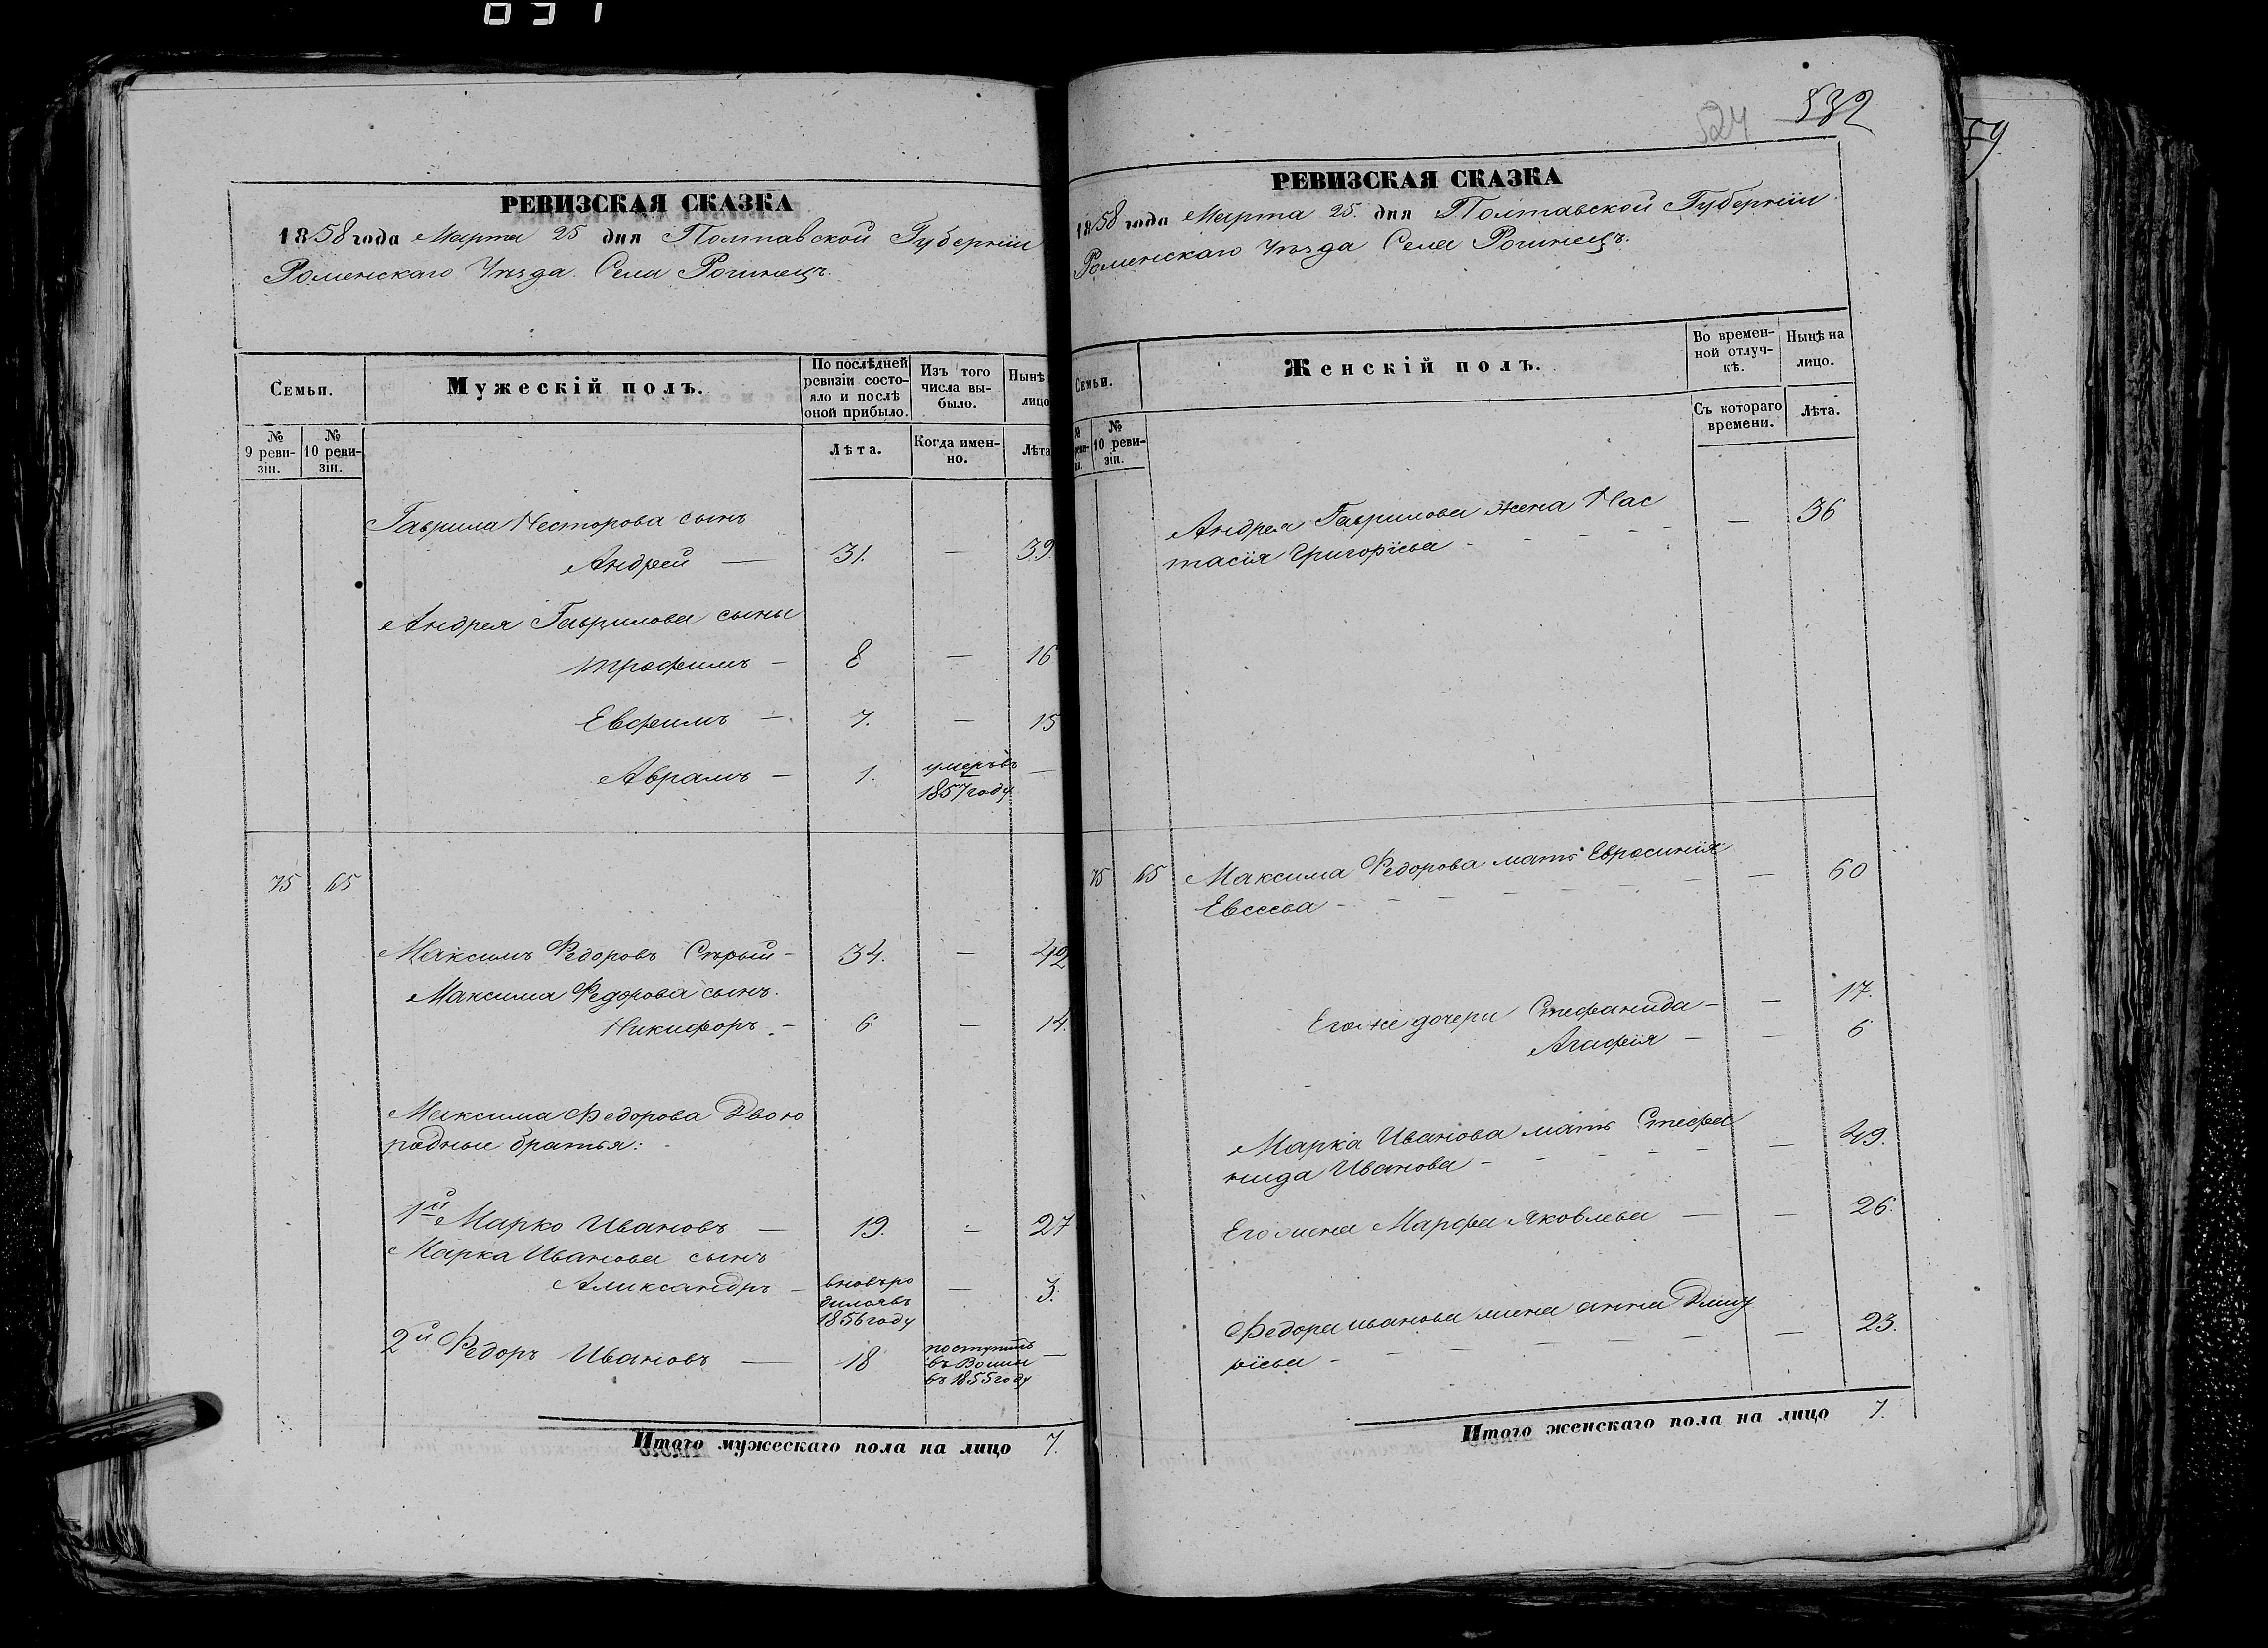 РЕВИЗСКАЯ СКАЗКА
1858 года Марта 25 дня Полтавской Губерніи
Роменскаго Уѣзда Села Рогинецъ.
Семьи.
Мужескій полъ.
По послѣдней ревизіи состояло и послѣ оной прибыло.
Изъ того числа выбыло.
Нынѣ
лицо
№ 9 ревизіи.
№ 10 ревизіи.
Лѣта.
Когда именно.
Лѣта
Гаврила Несторова сынъ
Андрей — 31. — 39.
Андрея Гаврилова сыны
Трофимъ — 8 — 16
Евфимъ — 7. — 15
Аврамъ — 1. умеръ въ 1857 году —
75 65
Максимъ Федоровъ Сѣрый — 34. — 42
Максима Федорова сынъ.
Никифоръ — 6 — 14.
Максима Федорова Двою
родные братья:
1й Марко Ивановъ — 19. — 27
Марка Иванова сынъ
Александръ — вновь родился въ 1856 году — 3.
2й Федоръ Ивановъ — 18 поступилъ въ 1855 году —
Итого мужескаго пола на лицо 7.
524 532
РЕВИЗСКАЯ СКАЗКА
1858 года Марта 25. дня Полтавской Губерніи
Роменскаго Уѣзда Села Рогинецъ.
Семьи.
Женскій полъ.
Во временной отлучкѣ.
Нынѣ на лицо.
№
№ 10 ревизіи.
Съ котораго времени.
Лѣта.
Андрея Гаврилова жена Нас — 36
тасія Григоріева
75 65 Максима Федорова мать Евросинія — 60
Евсеева
Его же дочери Стефанида — — 17.
Агафія — — 6
Марка Иванова мать Стефа — 49.
нида Иванова
Его жена Марфа Яковлева — — 26.
Федора иванова жена анна Дмит — 23.
ріева
Итого женскаго пола на лицо 7.